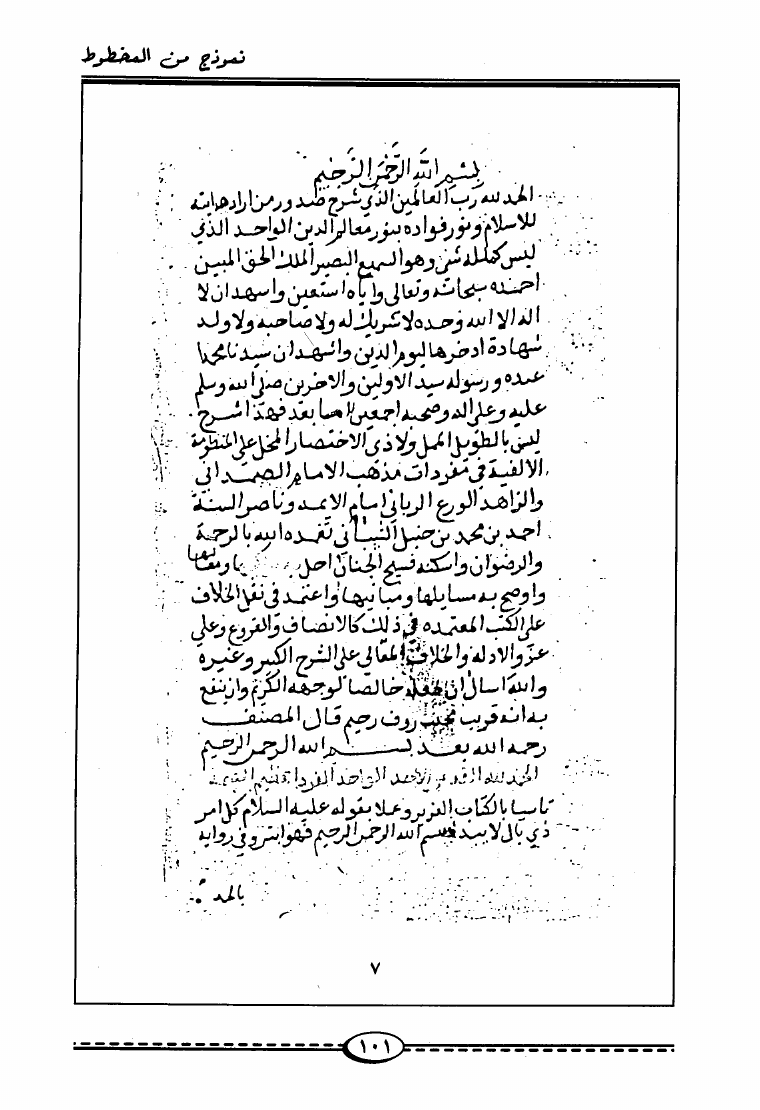 نموذج من المخطوط
بسم الله الرَّحمن الرَّحيم
الحمد لله رب العالمين الذي شرح صدور من اراد هدايته
للاسلام ونور فواده بنور معالم الدين الواحد الذي
ليس كمثله شي وهو السميع البصير الملك الحق المبين
احمده سبحانه وتعالى واياه استعين واشهد ان لا
اله الا الله وحده لا شريك له ولا صاحبه ولا ولد
شهادة ادخرها ليوم الدين واشهد ان سيدنا محمدا
عبده ورسوله سيد الاولين والاخرين صلى الله وسلم
عليه وعلى اله وصحبه اجمعين اما بعد فهذا شرح
ليس بالطويل الممل ولا ذي الاختصار المخل على المنظومة
الالفية في مفردات مذهب الامام الصمداني
والزاهد الورع الرباني امام الايمه وناصر السنة
احمد بن محمد بن حنبل الشيباني تغمده الله بالرحمة
والرضوان واسكنه فسيح الجنان احل ومعانيها
واوضح به مسايلها ومبانيها واعتمد في نقل الخلاف
على الكتب المعتمده في ذلك كالانصاف والفروع وعلي
عزو الادله والخلاف العالي على الشرح الكبير وغيره
والله اسال ان يجعله خالصا لوجهه الكريم وان ينفع
به انه قريب مجيب روف رحيم قال المصنف
رحمه الله بعد بسم الله الرحمن الرحيم
الحمد لله الاحد الواحد الفرد
تاسيا بالكتاب العزيز وعملا بقوله عليه السلام كل امر
ذي بال لا يبد فيه ببسم الله الرحمن الرحيم فهو ابتر وفي روايه
بالحمد
٧
١٠١